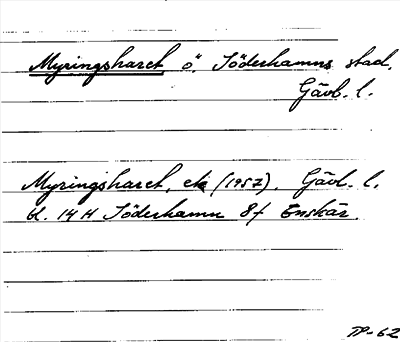 Myringsharet ö. Söderhamns stad.
Gävl. l.
Myringsharet, ek (1957). Gävl. l.
bl. 14 H Söderhamn 8f Enskär.
TP-62